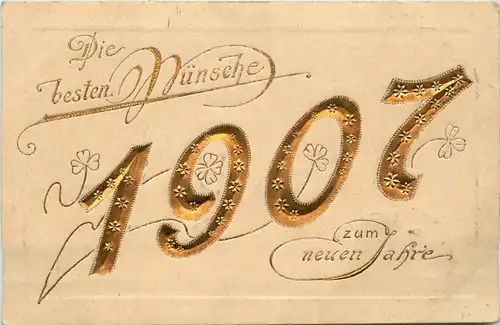 Die
besten Wünsche
1907
zum
neuen Jahre